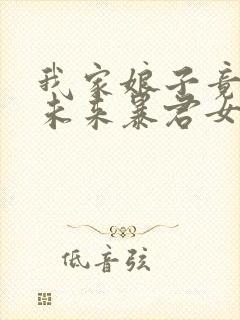 我家娘子竟
未来暴君女
低音弦